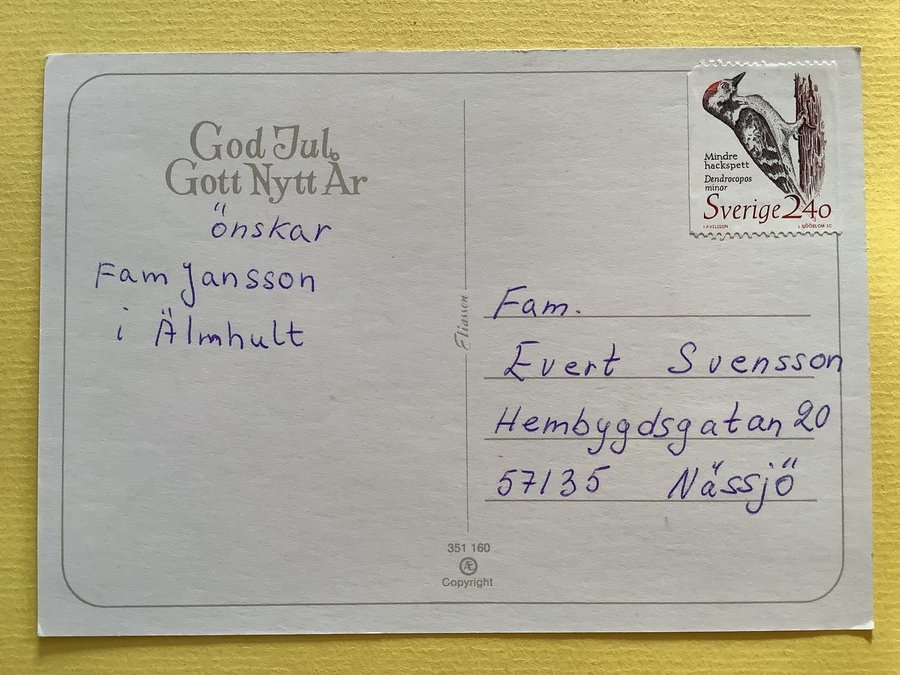 God Jul,
Gott Nytt År
önskar
Fam Jansson
i Älmhult
Eliasson
351 160
Æ
Copyright
Mindre
hackspett
Dendrocopos
minor
Sverige 240
I AXELSSON L SJÖÖBLOM SC
Fam.
Evert Svensson
Hembygdsgatan 20
57135 Nässjö